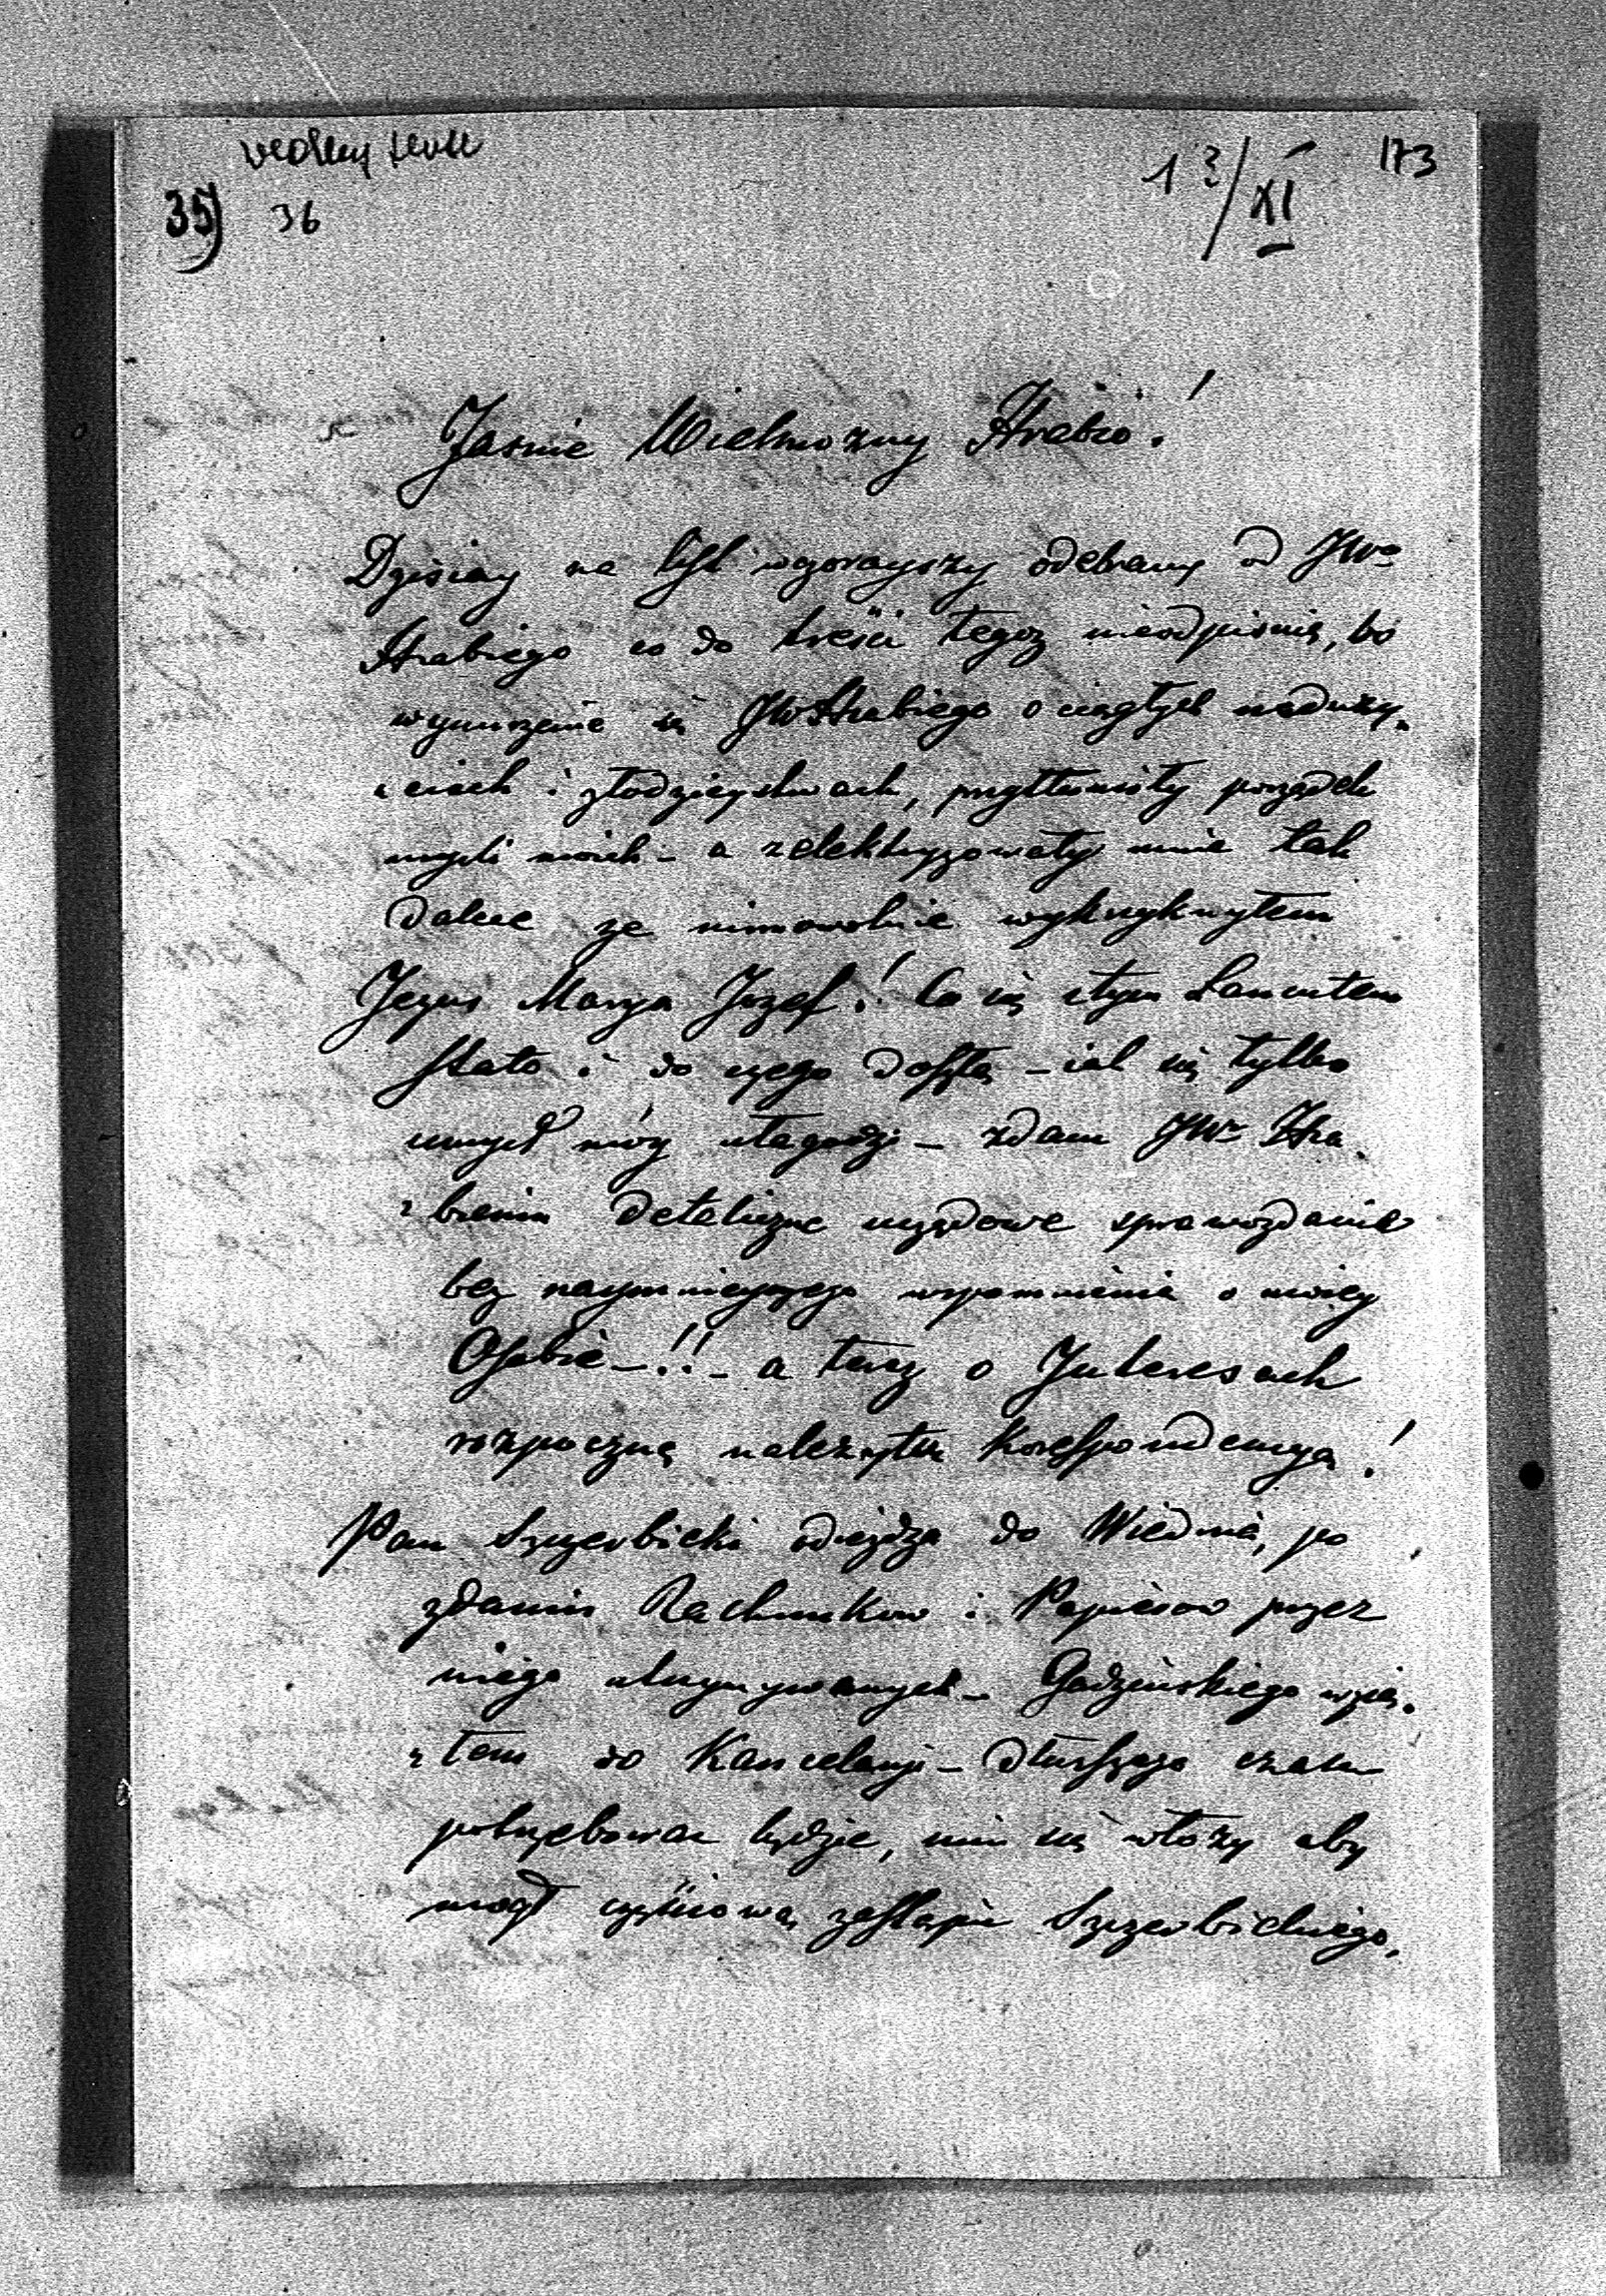 35) 36
13/XI 173
Jasnie Wielmozny Hrabio!
Dzisiay na list wczorayszy odebrany od JWo
Hrabiego co do treści tegoz nieodpisuię, bo
wynurzenie się JWHrabiego o ciągłych naduży-
-ciach i złodzieystwach, przytłumiły porządek
myśli moich - a zelektryzowały mnie tak
dalece ze mimowolnie wykrzyknąłem
Jezus Marya Jozef! Co się stym Lancutem
stało i do czego doszło - iak się tylko
umysł móy ułagodzi - zdam JWu Hra-
-biemu detaliczne urzędowe sprawozdanie
bez naymnieyszego wspomnienia o moiey
Osobie - !! - a teraz o Interesach
rozpoczne należytu Korespondencyą!
Pan Szczerbicki odieżdza do Wiednia, po
zdaniu Rachunkow i Papierow przez
niego utrzymywanych - Gadzinskiego wzią-
-łem do Kancelaryi - dłuższego czasu
potrzebowac będzie, nim się włoży aby
mogł częściowo zastąpic Szczerbickiego,